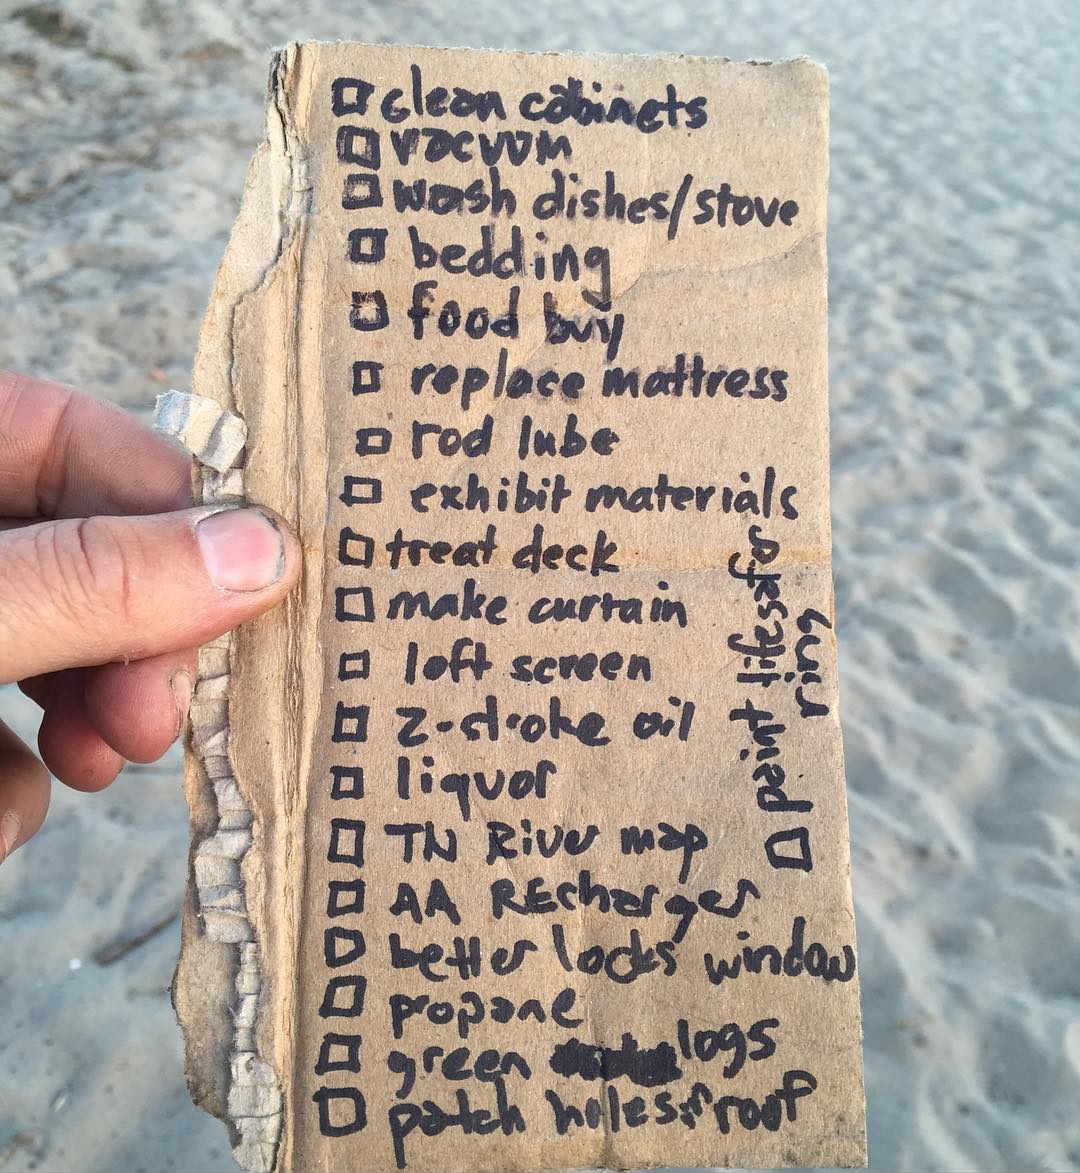 clean cabinets
vacuum
wash dishes/stove
bedding
food buy
replace mattress
rod lube
exhibit materials
treat deck
make curtain
loft screen
2-stroke oil
liquor
TN River map
AA REcharger
better locks window
propane
green logs
patch holes roof
paint lifesafor
ring